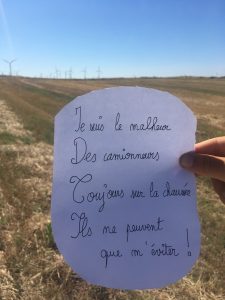 Je suis le malheur
Des camionneurs
Toujours sur la chaussée
Ils ne peuvent
que m'éviter !